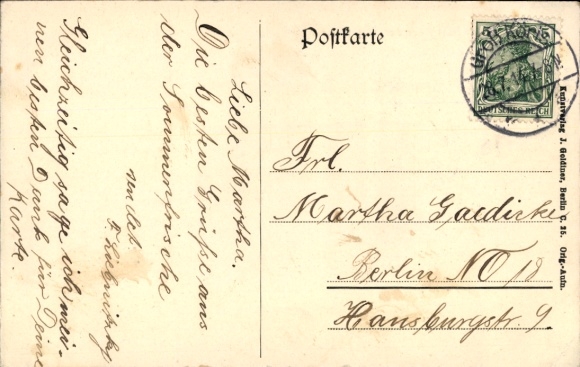 Postkarte
Liebe Martha.
Die besten Grüße aus
der Sommerfrische
sendet
Gleichzeitig sage ich mei-
nen besten Dank für Deine
Karte.
Frl.
Martha Gaedicke
Berlin NO 18
Hansburgstr. 9.
DEUTSCHES REICH
Kunstverlag J. Goldiner, Berlin C. 25. Orig.-Aufn.